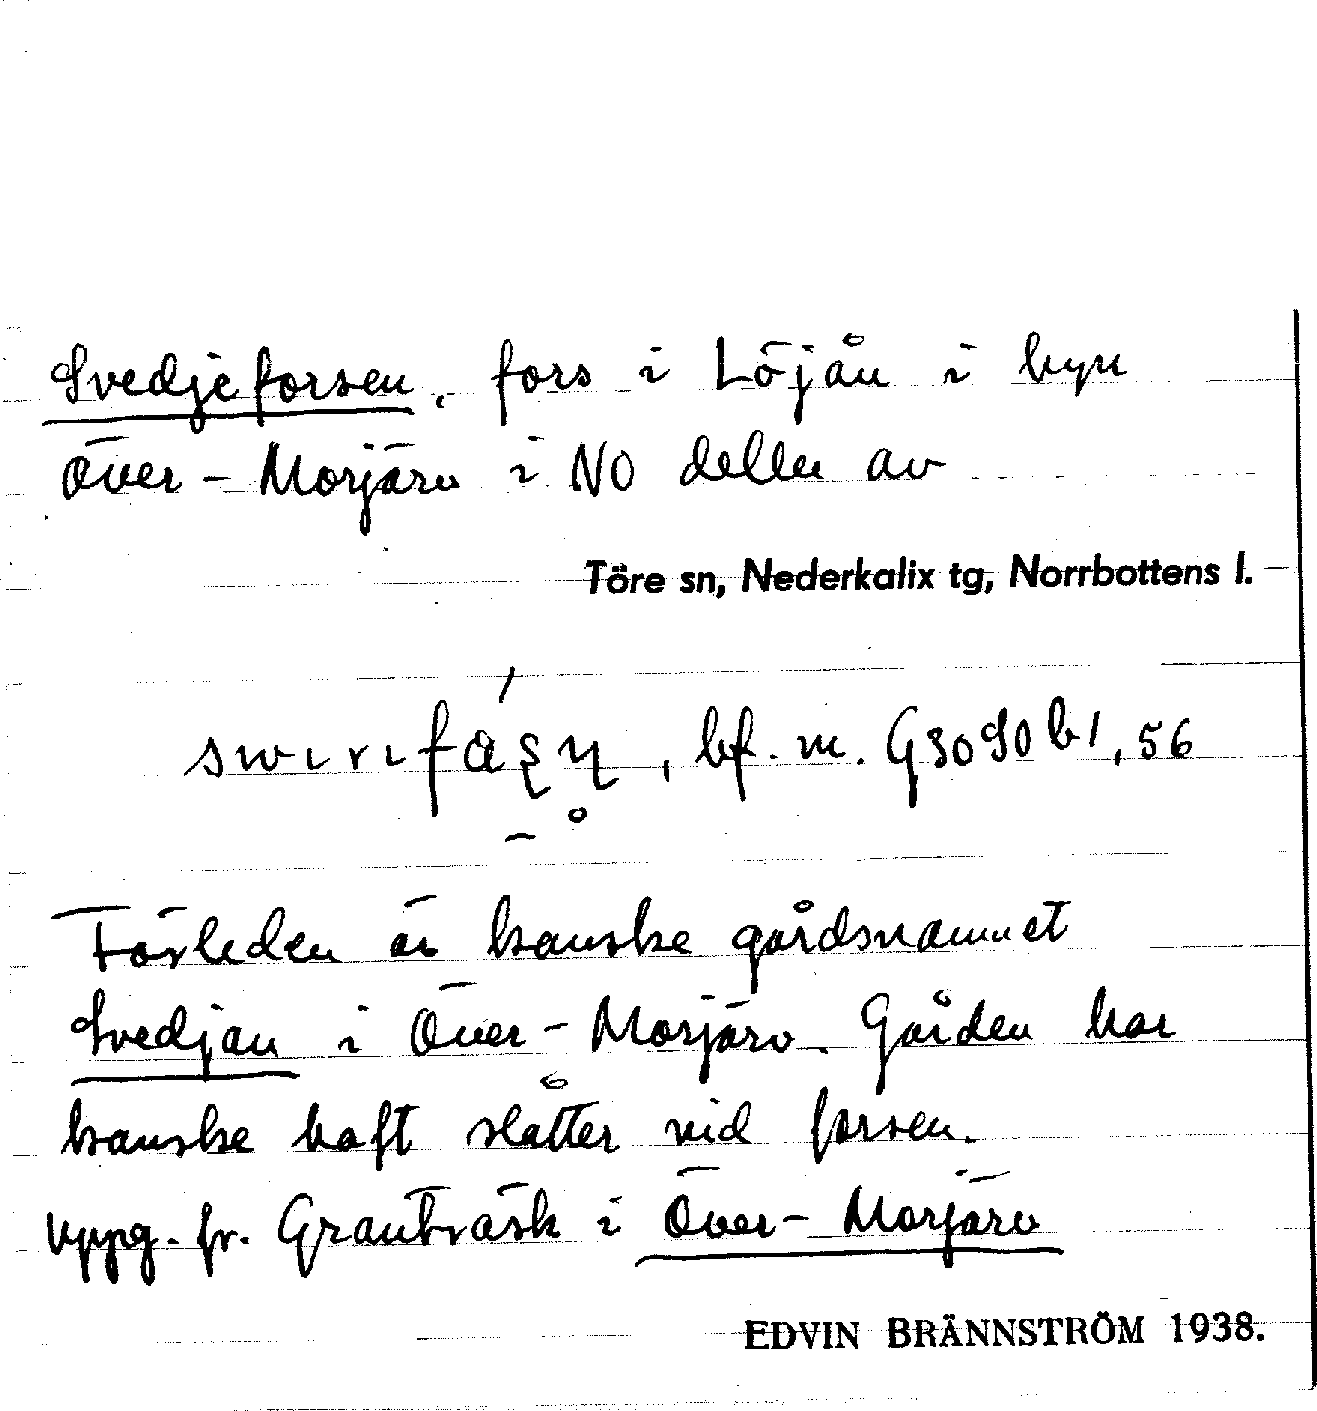 Svedjeforsen, fors i Löjån i byn
Över-Morjärv i NO delen av
Töre sn, Nederkalix tg, Norrbottens l.
bf. m. G3090 b1, 56
Förleden är kanske gårdsnamnet
Svedjan i Över-Morjärv. Gården har
kanske haft slåtter vid forsen.
Uppg. fr. Granträsk i Över-Morjärv
EDVIN BRÄNNSTRÖM 1938.